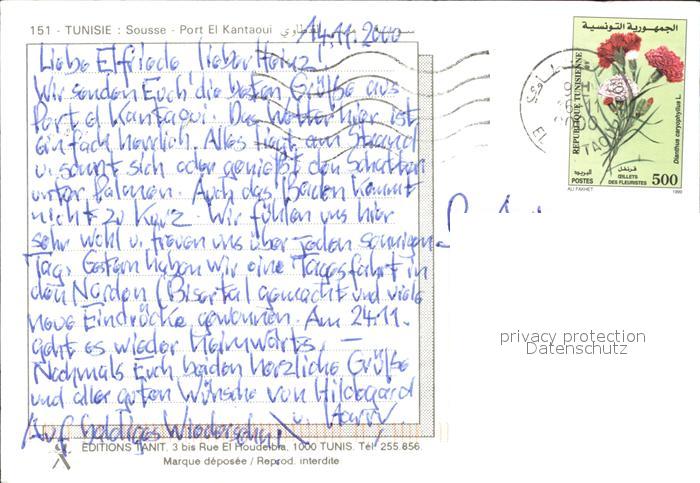 151 - TUNISIE : Sousse - Port El Kantaoui
14.11.2000
Liebe Elfriede, lieber Heinz!
Wir senden Euch die besten Grüße aus
Port el Kantaoui. Das Wetter hier ist
einfach herrlich. Alles liegt am Strand
u. sonnt sich oder genießt den Schatten
unter Palmen. Auch das Baden kommt
nicht zu kurz. Wir fühlen uns hier
sehr wohl u. freuen uns über jeden sonnigen
Tag. Gestern haben wir eine Tagesfahrt in
den Norden (Biserta) gemacht und viele
neue Eindrücke gewonnen. Am 24.11.
geht es wieder heimwärts. —
Nochmals Euch beiden herzliche Grüße
und alle guten Wünsche von Hildegard
u. Harry.
Auf baldiges Wiedersehn!
EDITIONS TANIT, 3 bis Rue El Houdeibia, 1000 TUNIS. Tél. 255.856
Marque déposée / Reprod. interdite
الجمهورية التونسية
REPUBLIQUE TUNISIENNE
Dianthus caryophyllus L.
قرنفل
البريد
POSTES
ŒILLETS
DES FLEURISTES
500
ALI FAKHET
1999
privacy protection
Datenschutz